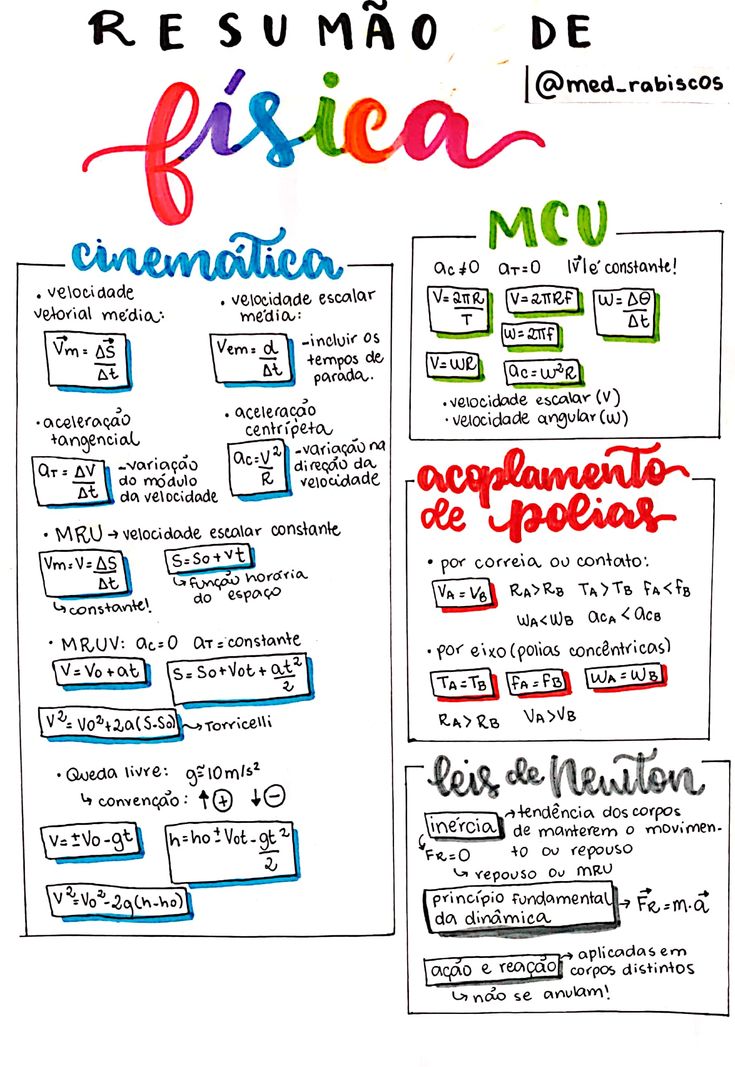 RESUMÃO DE
física
@med_rabiscos
cinemática
• velocidade
vetorial média:
V⃗m = ΔS⃗/Δt
• velocidade escalar
média:
Vem = d/Δt
-incluir os
tempos de
parada.
• aceleração
tangencial
aT = ΔV/Δt
-variação
do módulo
da velocidade
• aceleração
centrípeta
ac = V²/R
-variação na
direção da
velocidade
• MRU → velocidade escalar constante
Vm = V = ΔS/Δt
↳ constante!
S = So + vt
↳ função horária
do espaço
• MRUV: ac = 0 aT = constante
V = Vo + at
S = So + Vot + at²/2
V² = Vo² + 2a(S-So)
→ Torricelli
• Queda livre: g ≅ 10m/s²
↳ convenção: ↑⊕ ↓⊖
V = ±Vo - gt
h = ho ± Vot - gt²/2
V² = Vo² - 2g(h-ho)
MCU
ac ≠ 0 aT = 0 |V⃗| é constante!
V = 2πR/T
V = 2πRf
W = Δθ/Δt
W = 2πf
V = WR
ac = W²R
• velocidade escalar (V)
• velocidade angular (W)
acoplamento
de polias
• por correia ou contato:
VA = VB RA > RB TA > TB fA < fB
WA < WB acA < acB
• por eixo (polias concêntricas)
TA = TB fA = fB WA = WB
RA > RB VA > VB
leis de Newton
inércia
→ tendência dos corpos
de manterem o movimen-
to ou repouso
FR = 0
↳ repouso ou MRU
princípio fundamental
da dinâmica
→ F⃗R = m·a⃗
ação e reação
→ aplicadas em
corpos distintos
↳ não se anulam!